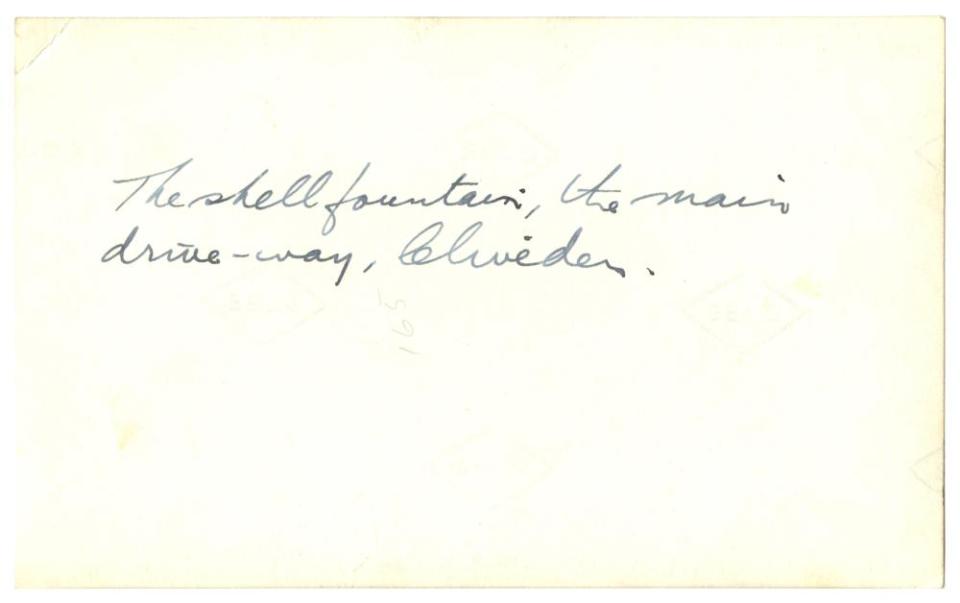 The shell fountain, the main
drive-way, Cliveden.
165